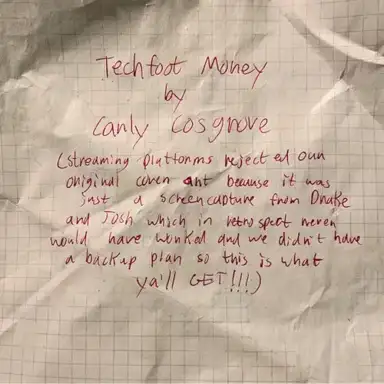 Techfoot Money
by
Carly Cosgrove
(streaming platforms rejected our
original cover art because it was
just a screencapture from Drake
and Josh which in retrospect never
would have worked and we didn't have
a backup plan so this is what
ya'll GET!!!)